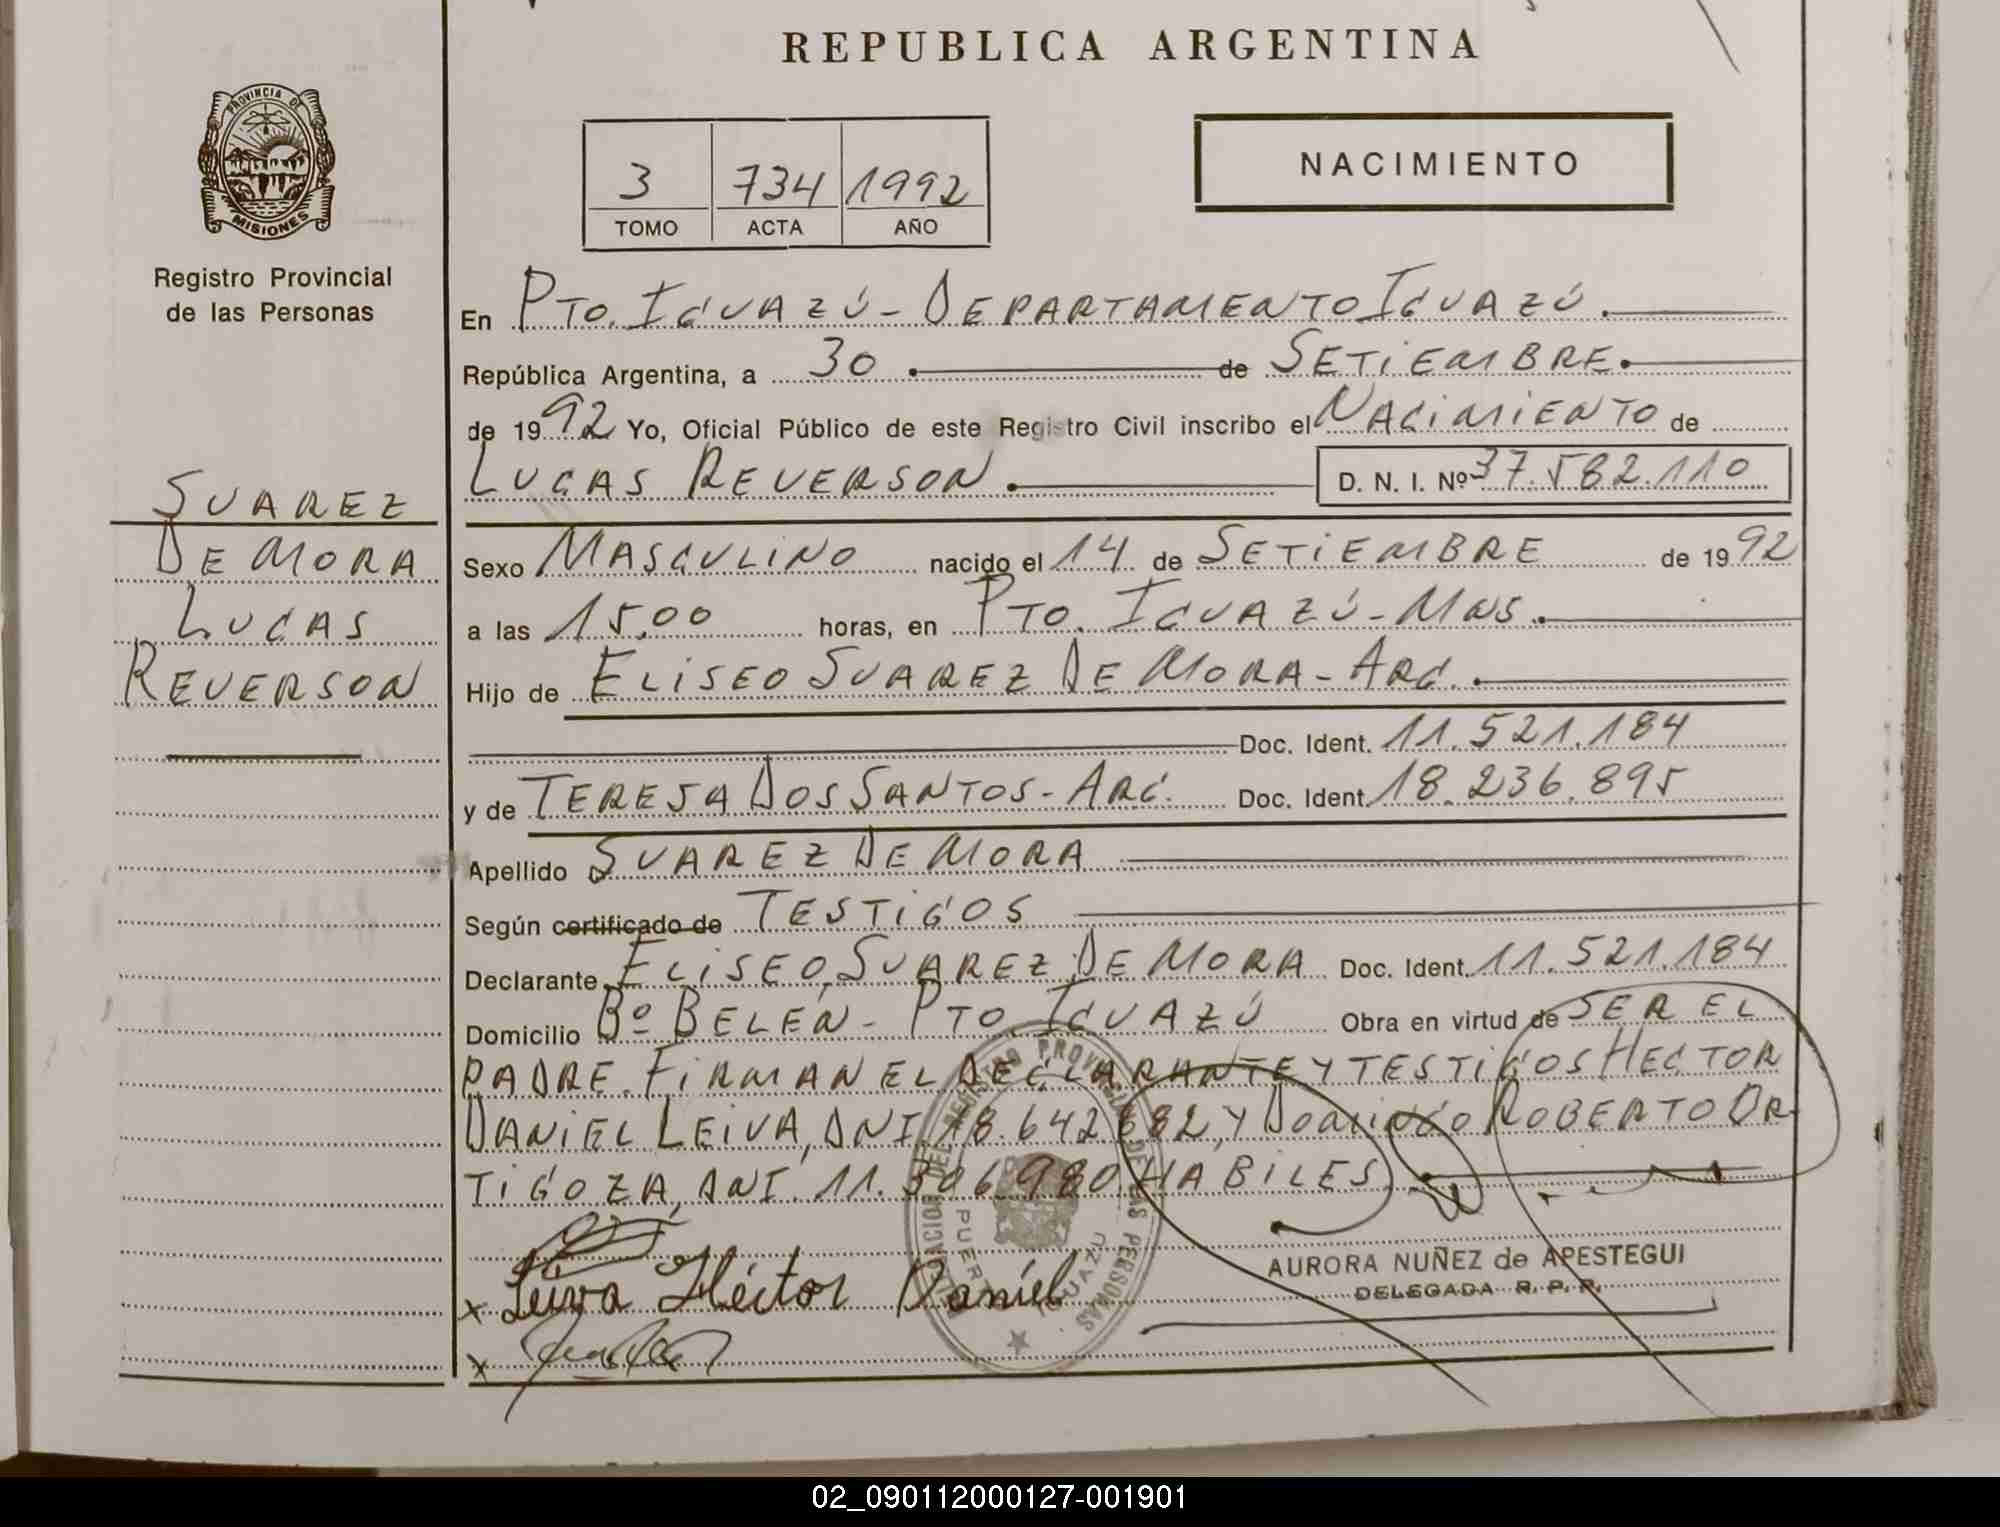 REPUBLICA ARGENTINA
PROVINCIA DE
MISIONES
Registro Provincial
de las Personas
3 734 1992
TOMO ACTA AÑO
NACIMIENTO
En PTO. IGUAZÚ - DEPARTAMENTO IGUAZÚ.
República Argentina, a 30 de SETIEMBRE.
de 1992 Yo, Oficial Público de este Registro Civil inscribo el NACIMIENTO de
LUCAS REVERSON. D. N. I. Nº 37.582.110
SUAREZ
DE MORA
LUCAS
REVERSON
Sexo MASCULINO nacido el 14 de SETIEMBRE de 1992
a las 15,00 horas, en PTO. IGUAZÚ - MNS.
Hijo de ELISEO SUAREZ DE MORA - ARG.
Doc. Ident. 11.521.184
y de TERESA DOS SANTOS - ARG. Doc. Ident. 18.236.895
Apellido SUAREZ DE MORA
Según certificado de TESTIGOS
Declarante ELISEO SUAREZ DE MORA Doc. Ident. 11.521.184
Domicilio Bº BELÉN - PTO. IGUAZÚ Obra en virtud de SER EL
PADRE. FIRMAN EL DECLARANTE Y TESTIGOS HECTOR
DANIEL LEIVA, DNI. 18.642.882, Y DOMINGO ROBERTO OR-
TIGOZA, DNI. 11.306.980 HABILES
AURORA NUÑEZ de APESTEGUI
DELEGADA R. P. P.
x Leiva Héctor Daniel
x
02_090112000127-001901